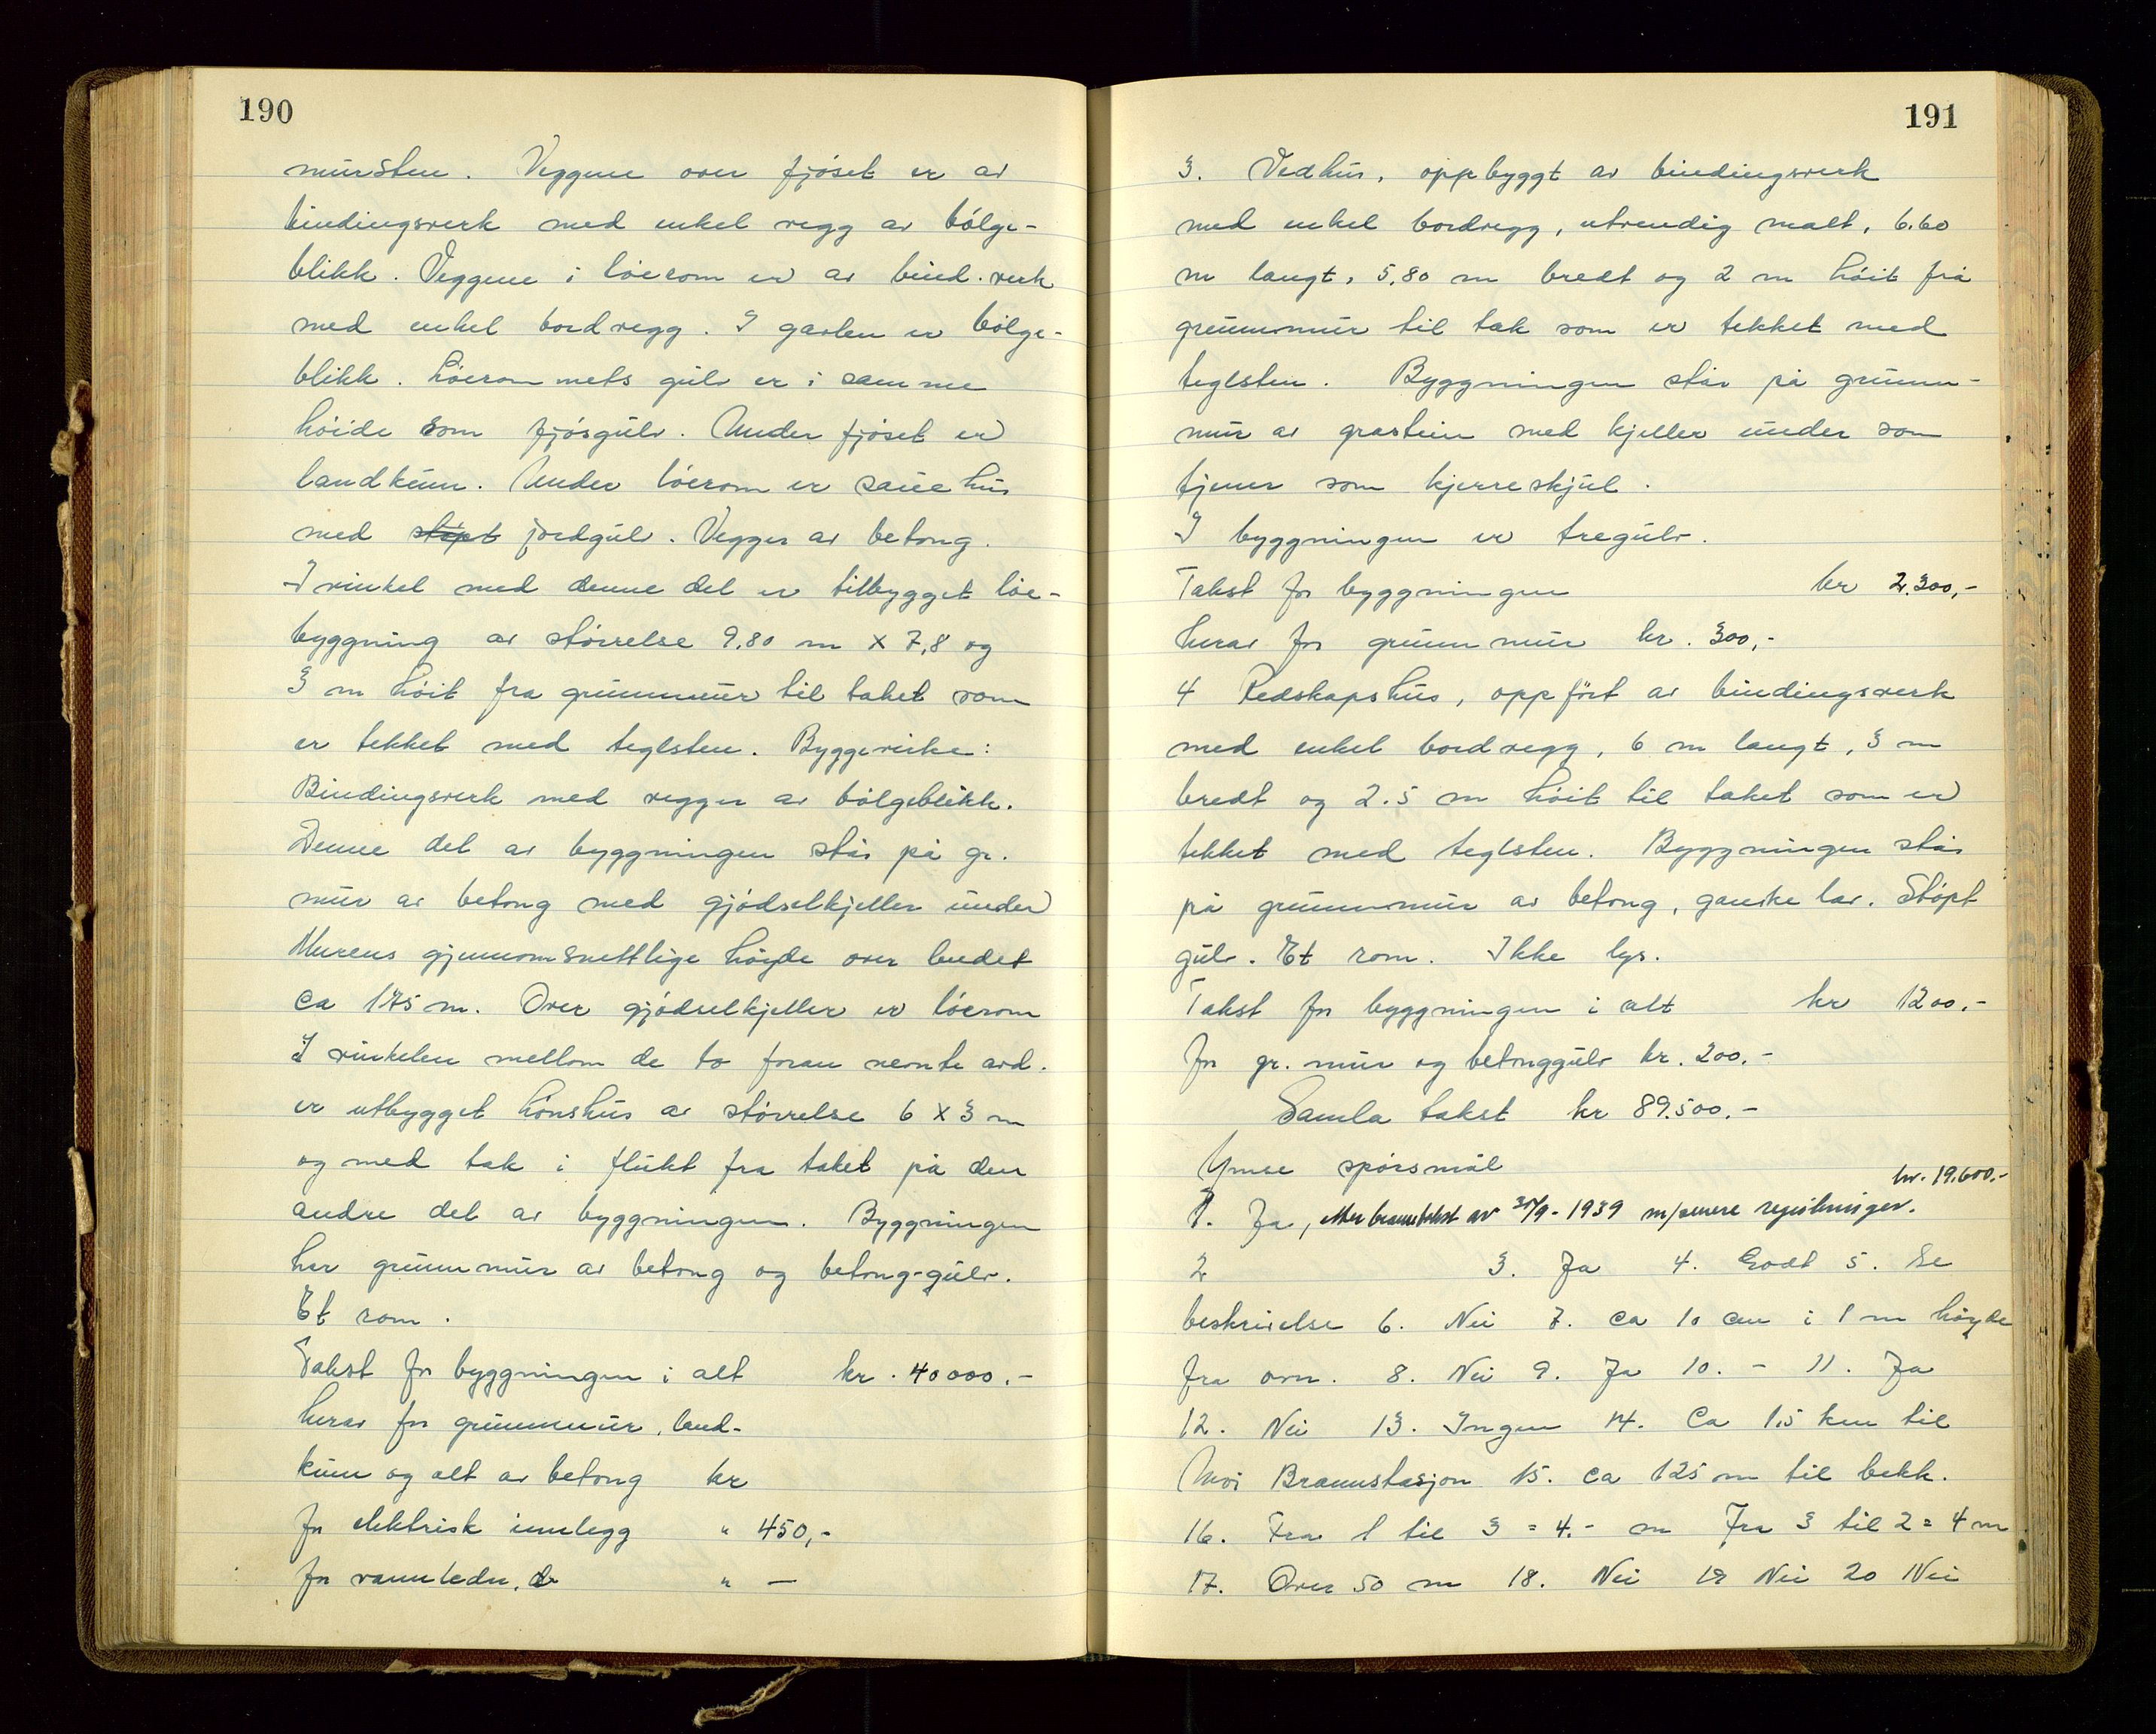 190
mursten. Veggene over fjøset er av
bindingsverk med enkel vegg av bølge-
blikk. Veggene i løerom er av bind.verk
med enkel bordvegg. I gavlen er bølge-
blikk. Løerommets gulv er i samme
høide som fjøsgulv. Under fjøset er
landkum. Under løerom er sauehus
med støpt jordgulv. Vegger av betong.
I vinkel med denne del er tilbygget løe-
byggning av størrelse 9.80 m x 7,8 og
3 m høit fra grunnmur til taket som
er tekket med teglsten. Byggevirke:
Bindingsverk med vegger av bølgeblikk.
Denne del av byggningen står på gr.
mur av betong med gjødselkjeller under
Murens gjennomsnettlige høyde over lendet
ca 1.75 m. Over gjødselkjeller er løerom
I vinkelen mellom de to foran nevnte avd.
er utbygget hønshus av størrelse 6 x 3 m
og med tak i flukt fra taket på den
andre del av byggningen. Byggningen
har grunnmur av betong og betong-gulv.
Et rom.
Takst for byggningen i alt kr. 40000.-
herav for grunnmur, land-
kum og alt av betong kr
for elektrisk innlegg " 450,-
for vannledn. " —
191
3. Vedhus, oppbyggt av bindingsverk
med enkel bordvegg, utvendig malt, 6.60
m langt, 5.80 m bredt og 2 m høit frå
grunnmur til tak som er tekket med
teglsten. Byggningen står på grunn-
mur av grastein med kjeller under som
tjener som kjerreskjul.
I byggningen er tregulv.
Takst for byggningen kr 2.300,-
herav for grunnmur kr. 300,-
4 Redskapshus, oppført av bindingsverk
med enkel bordvegg, 6 m langt, 3 m
bredt og 2.5 m høit til taket som er
tekket med teglsten. Byggningen står
på grunnmur av betong, ganske lav. Støpt
gulv. Et rom. Ikke lys.
Takst for byggningen i alt kr 1200.-
for gr. mur og betonggulv kr. 200.-
Samla takst kr 89.500.-
Ymse spørsmål
kr. 19.600.-
1. Ja, etter branntakst av 30/9-1939 m/senere
2 3. Ja 4. Godt 5. Se
beskrivelse 6. Nei 7. ca 10 cm i 1 m høyde
fra ovn. 8. Nei 9. Ja 10. - 11. Ja
12. Nei 13. Ingen 14. Ca 1.5 km til
Moi Brannstasjon 15. ca 125 m til bekk.
16. Fra 1 til 3 = 4.- m Fra 3 til 2 = 4 m
17. Over 50 m 18. Nei 19 Nei 20 Nei